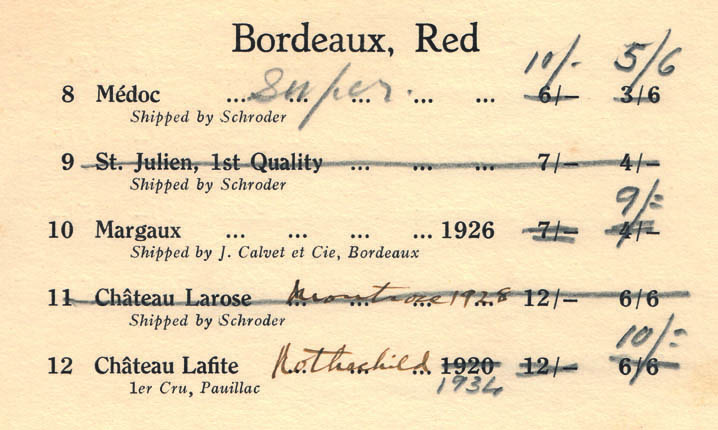 Bordeaux, Red
10/- 5/6
8 Médoc ... Super. ... ... ... 6/– 3/6
Shipped by Schroder
9 St. Julien, 1st Quality ... ... ... 7/– 4/–
Shipped by Schroder
9/-
10 Margaux ... ... ... ... 1926 7/– 4/–
Shipped by J. Calvet et Cie, Bordeaux
11 Château Larose Montrose 1928 ... ... ... 12/– 6/6
Shipped by Schroder
10/-
12 Château Lafite Rothschild ... ... ... 1920 12/– 6/6
1er Cru, Pauillac 1934